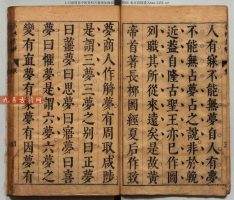 人有寐不能無夢自人有夢
不能無占夢之說非於
近蓋自隆古聖王亦已作圖
列職其所從來遠矣是故黃
帝首著長柳圖經夏后作致
夢商人作觭夢有周取咸陟
是謂三夢三夢之別曰正夢
曰噩夢曰思夢曰寤夢曰喜
夢曰懼夢是謂六夢六夢之
變有直夢有象夢有